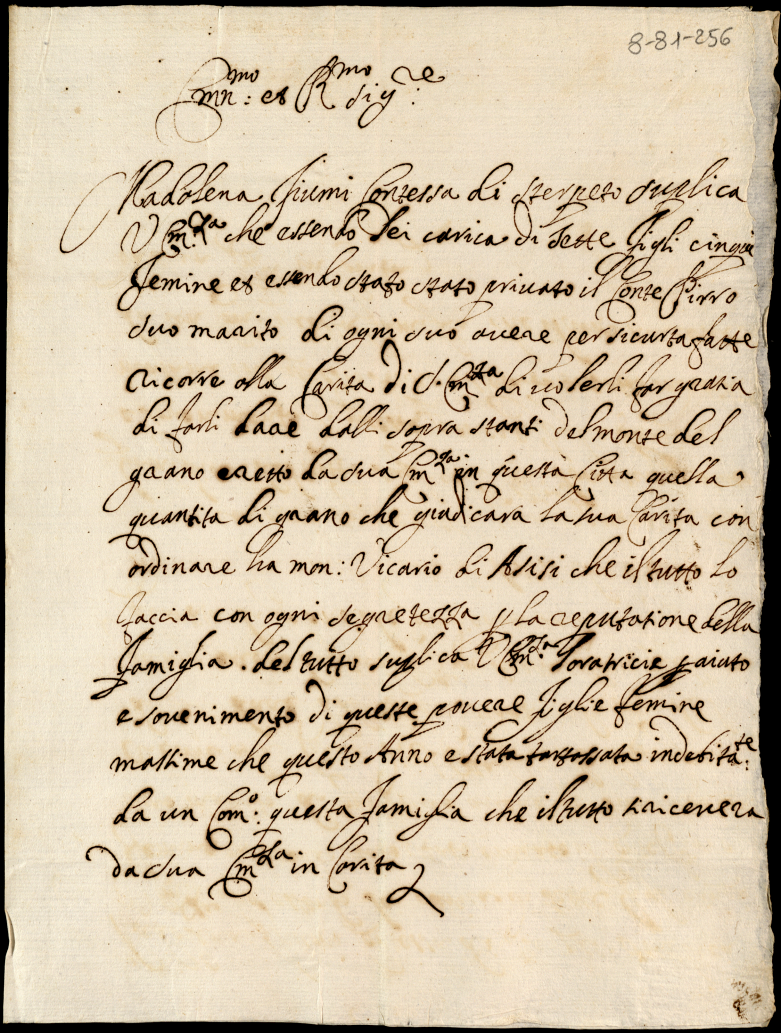 8-81-256
Emin.mo et R.mo Sig.re
Madalena fiumi Contessa di sterpeto suplica
V Em.za che essendo lei carica di sette figli cinque
femine et essendo stato stato privato il Conte Pirro
suo marito di ogni suo avere per sicurta fatte
ricorre alla Carita di S. Em.za di volerli far gratia
di farli dare dalli sopra stanti del monte del
grano eretto da sua Em.za in questa Citta quella
quantita di grano che giudicara la sua Carita con
ordinare ha mon: Vicario di Asisi che il tutto lo
faccia con ogni segretezza p la reputatione della
famiglia. del tutto suplica V Em.za l'oratricie p aiuto
e sovenimento di queste povere figlie femine
massime che questo Anno e stata tartassata indebita.te
da un Com.o questa famiglia che il tutto ricevera
da sua Em.za in Carita